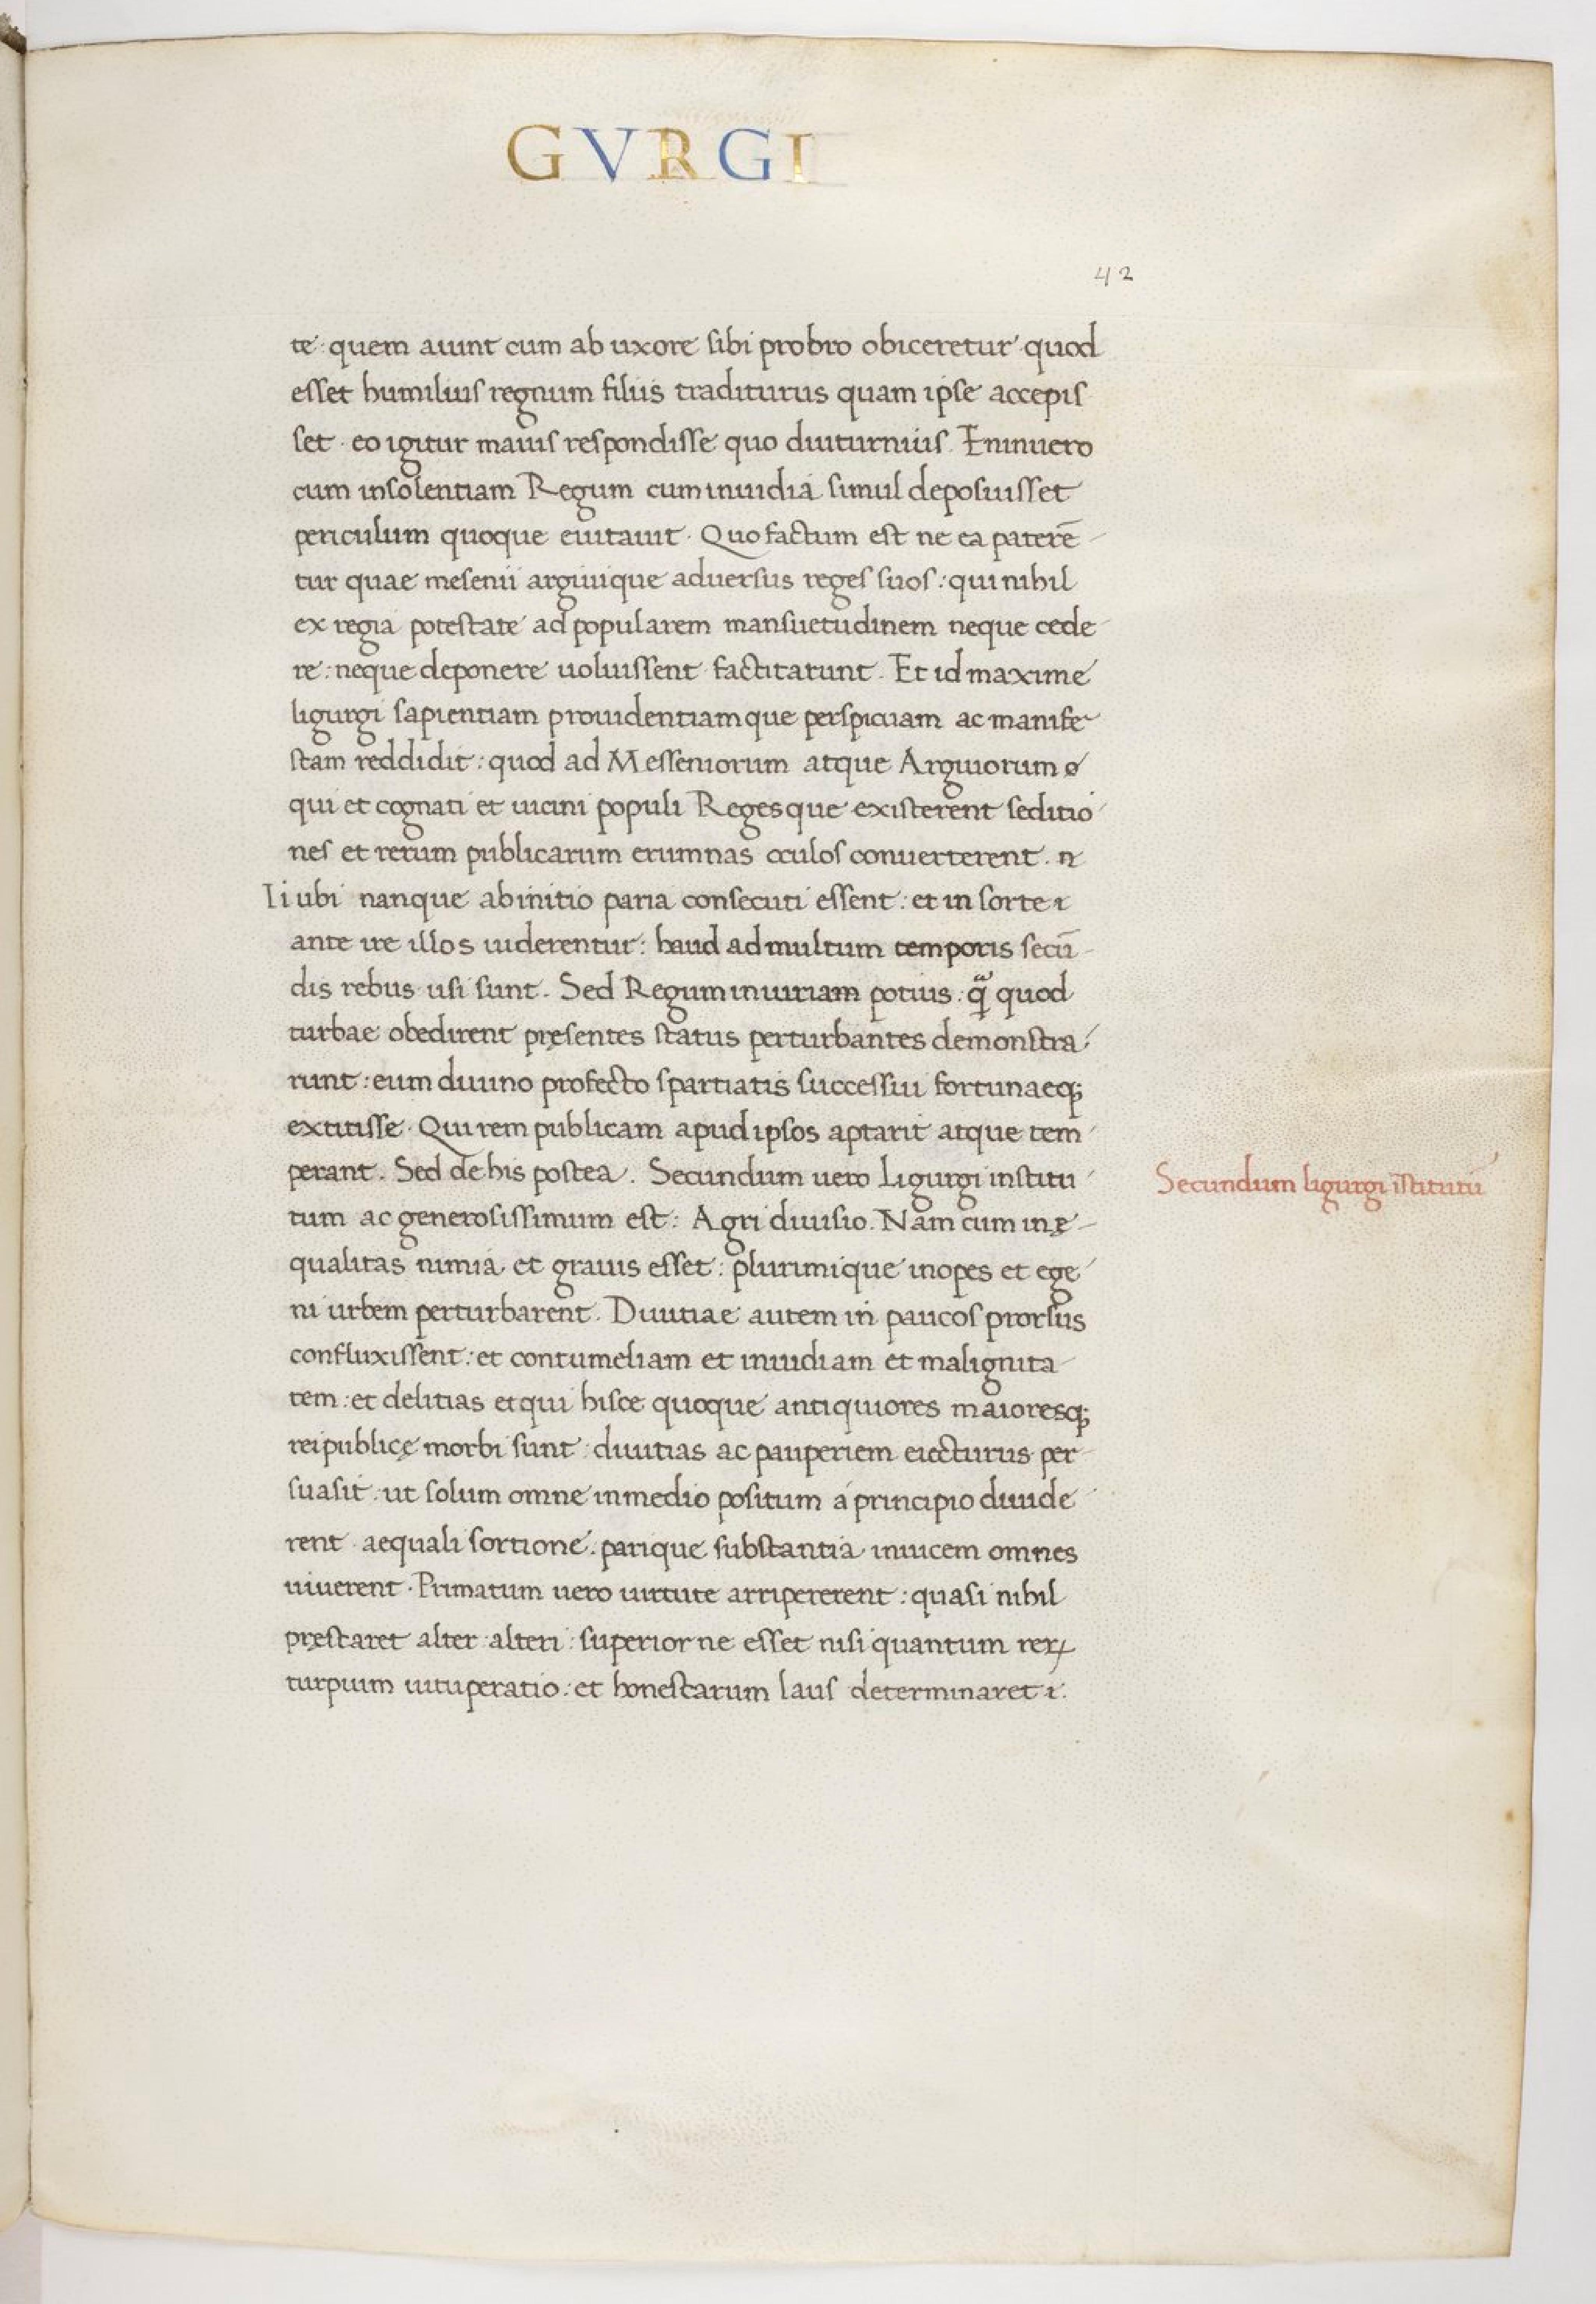 GVRGI
42
te: quem aiunt cum ab uxore sibi probro obiceretur quod
esset humilius regnum filiis traditurus quam ipse accepis
set. eo igitur maius respondisse quo diuturnius. Enimuero
cum insolentiam Regum cum inuidia simul deposuisset
periculum quoque euitauit. Quo factum est ne ea paterē
tur quae mesenii argiuique aduersus reges suos: qui nihil
ex regia potestate ad popularem mansuetudinem neque cede
re: neque deponere uoluissent factitarunt. Et id maxime
ligurgi sapientiam prouidentiamque perspicuam ac manife
stam reddidit: quod ad Messeniorum atque Argiuorum
qui et cognati et uicini populi Regesque existerent seditio
nes et rerum publicarum erumnas oculos conuerterent.
Ii ubi nanque ab initio paria consecuti essent: et in sorte
ante ire illos uiderentur: haud ad multum temporis secū
dis rebus usi sunt. Sed Regum iniuriam potius: quod
turbae obedirent pręsentes status perturbantes demonstra
runt: eum diuino profecto spartiatis successiui fortunaeq;
extitisse. Qui rem publicam apud ipsos aptarit atque tem
perant. Sed de his postea. Secundum uero Ligurgi institu
tum ac generosissimum est: Agri diuisio. Nam cum inę
qualitas nimia et grauis esset: plurimique inopes et ege
ni urbem perturbarent. Diuitiae autem in paucos prorsus
confluxissent: et contumeliam et inuidiam et malignita
tem: et delitias et qui hisce quoque antiquiores maioresq;
reipublicę morbi sunt: diuitias ac pauperiem eiecturus per
suasit: ut solum omne in medio positum a principio diuide
rent aequali sortione. parique substantia inuicem omnes
uiuerent. Primatum uero uirtute arripererent: quasi nihil
pręstaret alter alteri: superior ne esset nisi quantum reꝝ
turpium uituperatio: et honestarum laus determinaret
Secundum ligurgi istitutū